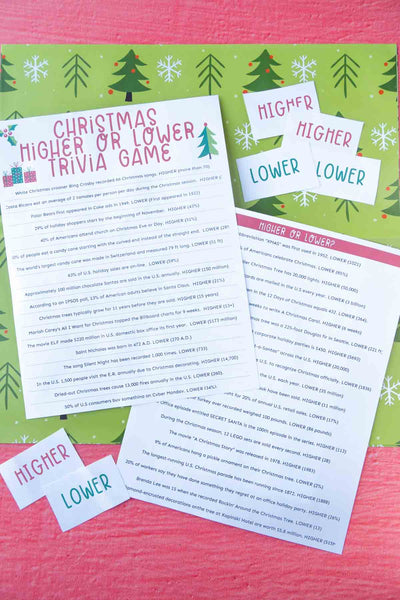 CHRISTMAS
HIGHER OR LOWER
TRIVIA GAME
White Christmas crooner Bing Crosby recorded on Christmas songs. HIGHER
eat an average of 2 tamales per person per day during the Christmas season. HIGHER
Polar Bears first appeared in Coke ads in 1945. LOWER (First appeared in 1922)
29% of holiday shoppers start by the beginning of November. HIGHER (43%)
40% of Americans attend church on Christmas Eve or Day. HIGHER (51%)
of people eat a candy cane starting with the curved and instead of the straight end. LOWER
The world's largest candy cane was made in Switzerland and measured 79 ft long. LOWER (51 ft)
63% of U.S. holiday sales are on-line. LOWER (58%)
Approximately 100 million chocolate Santas are sold in the U.S. annually. HIGHER (150 million)
According to an IPSOS poll, 13% of American adults believe in Santa Claus. HIGHER (21%)
Christmas trees typically grow for 11 years before they are sold. HIGHER (15 years)
Mariah Carey's All I Want for Christmas topped the Billboard charts for 9 weeks. HIGHER
The movie ELF made $220 million in U.S. domestic box office its first year. LOWER ($173 million)
Saint Nicholas was born in 472 A.D. LOWER (270 A.D.)
The song Silent Night has been recorded 1,000 times. LOWER (733)
In the U.S. 1,500 people visit the E.R. annually due to Christmas decorating. HIGHER (14,700)
Dried-out Christmas trees cause 13,000 fires annually in the U.S. LOWER (260)
50% of U.S. consumers buy something on Cyber Monday. LOWER (34%)
HIGHER
HIGHER
LOWER
LOWER
HIGHER OR LOWER?
abbreviation "XMAS" was first used in 1952. LOWER (1021)
of Americans celebrate Christmas. LOWER (85%)
Christmas Tree has 20,000 lights. HIGHER (50,000)
cards are mailed in the U.S. every year. LOWER (3 billion)
in the 12 Days of Christmas equals 432. LOWER (364)
weeks to write A Christmas Carol. HIGHER (6 weeks)
tree was in 221-foot Douglas fir in Seattle. LOWER (221 ft,
corporate holiday parties is $450. HIGHER
"Santas" across the U.S. HIGHER
U.S. state to recognize Christmas officially. LOWER (1836)
U.S. each year. LOWER (35 million)
have been sold. HIGHER (11 million)
for 20% of annual U.S. retail sales. LOWER
turkey ever recorded weighed 100 pounds. LOWER (86 pounds)
Office episode entitled SECRET SANTA is the 100th episode in the series. HIGHER
During the Christmas season, 12 LEGO sets are sold every second. HIGHER (28)
The movie "A Christmas Story" was released in 1978. HIGHER (1983)
9% of Americans hang a pickle ornament on their Christmas tree. LOWER
The longest running U.S. Christmas parade has been running since 1872. HIGHER
20% of workers say they have done something they regret at an office holiday party. HIGHER
Brenda Lee was 15 when she recorded Rockin' Around the Christmas Tree. LOWER (13)
diamond-encrusted decorations on the tree at Kepinski Hotel are worth $5.6 million. HIGHER
HIGHER
LOWER